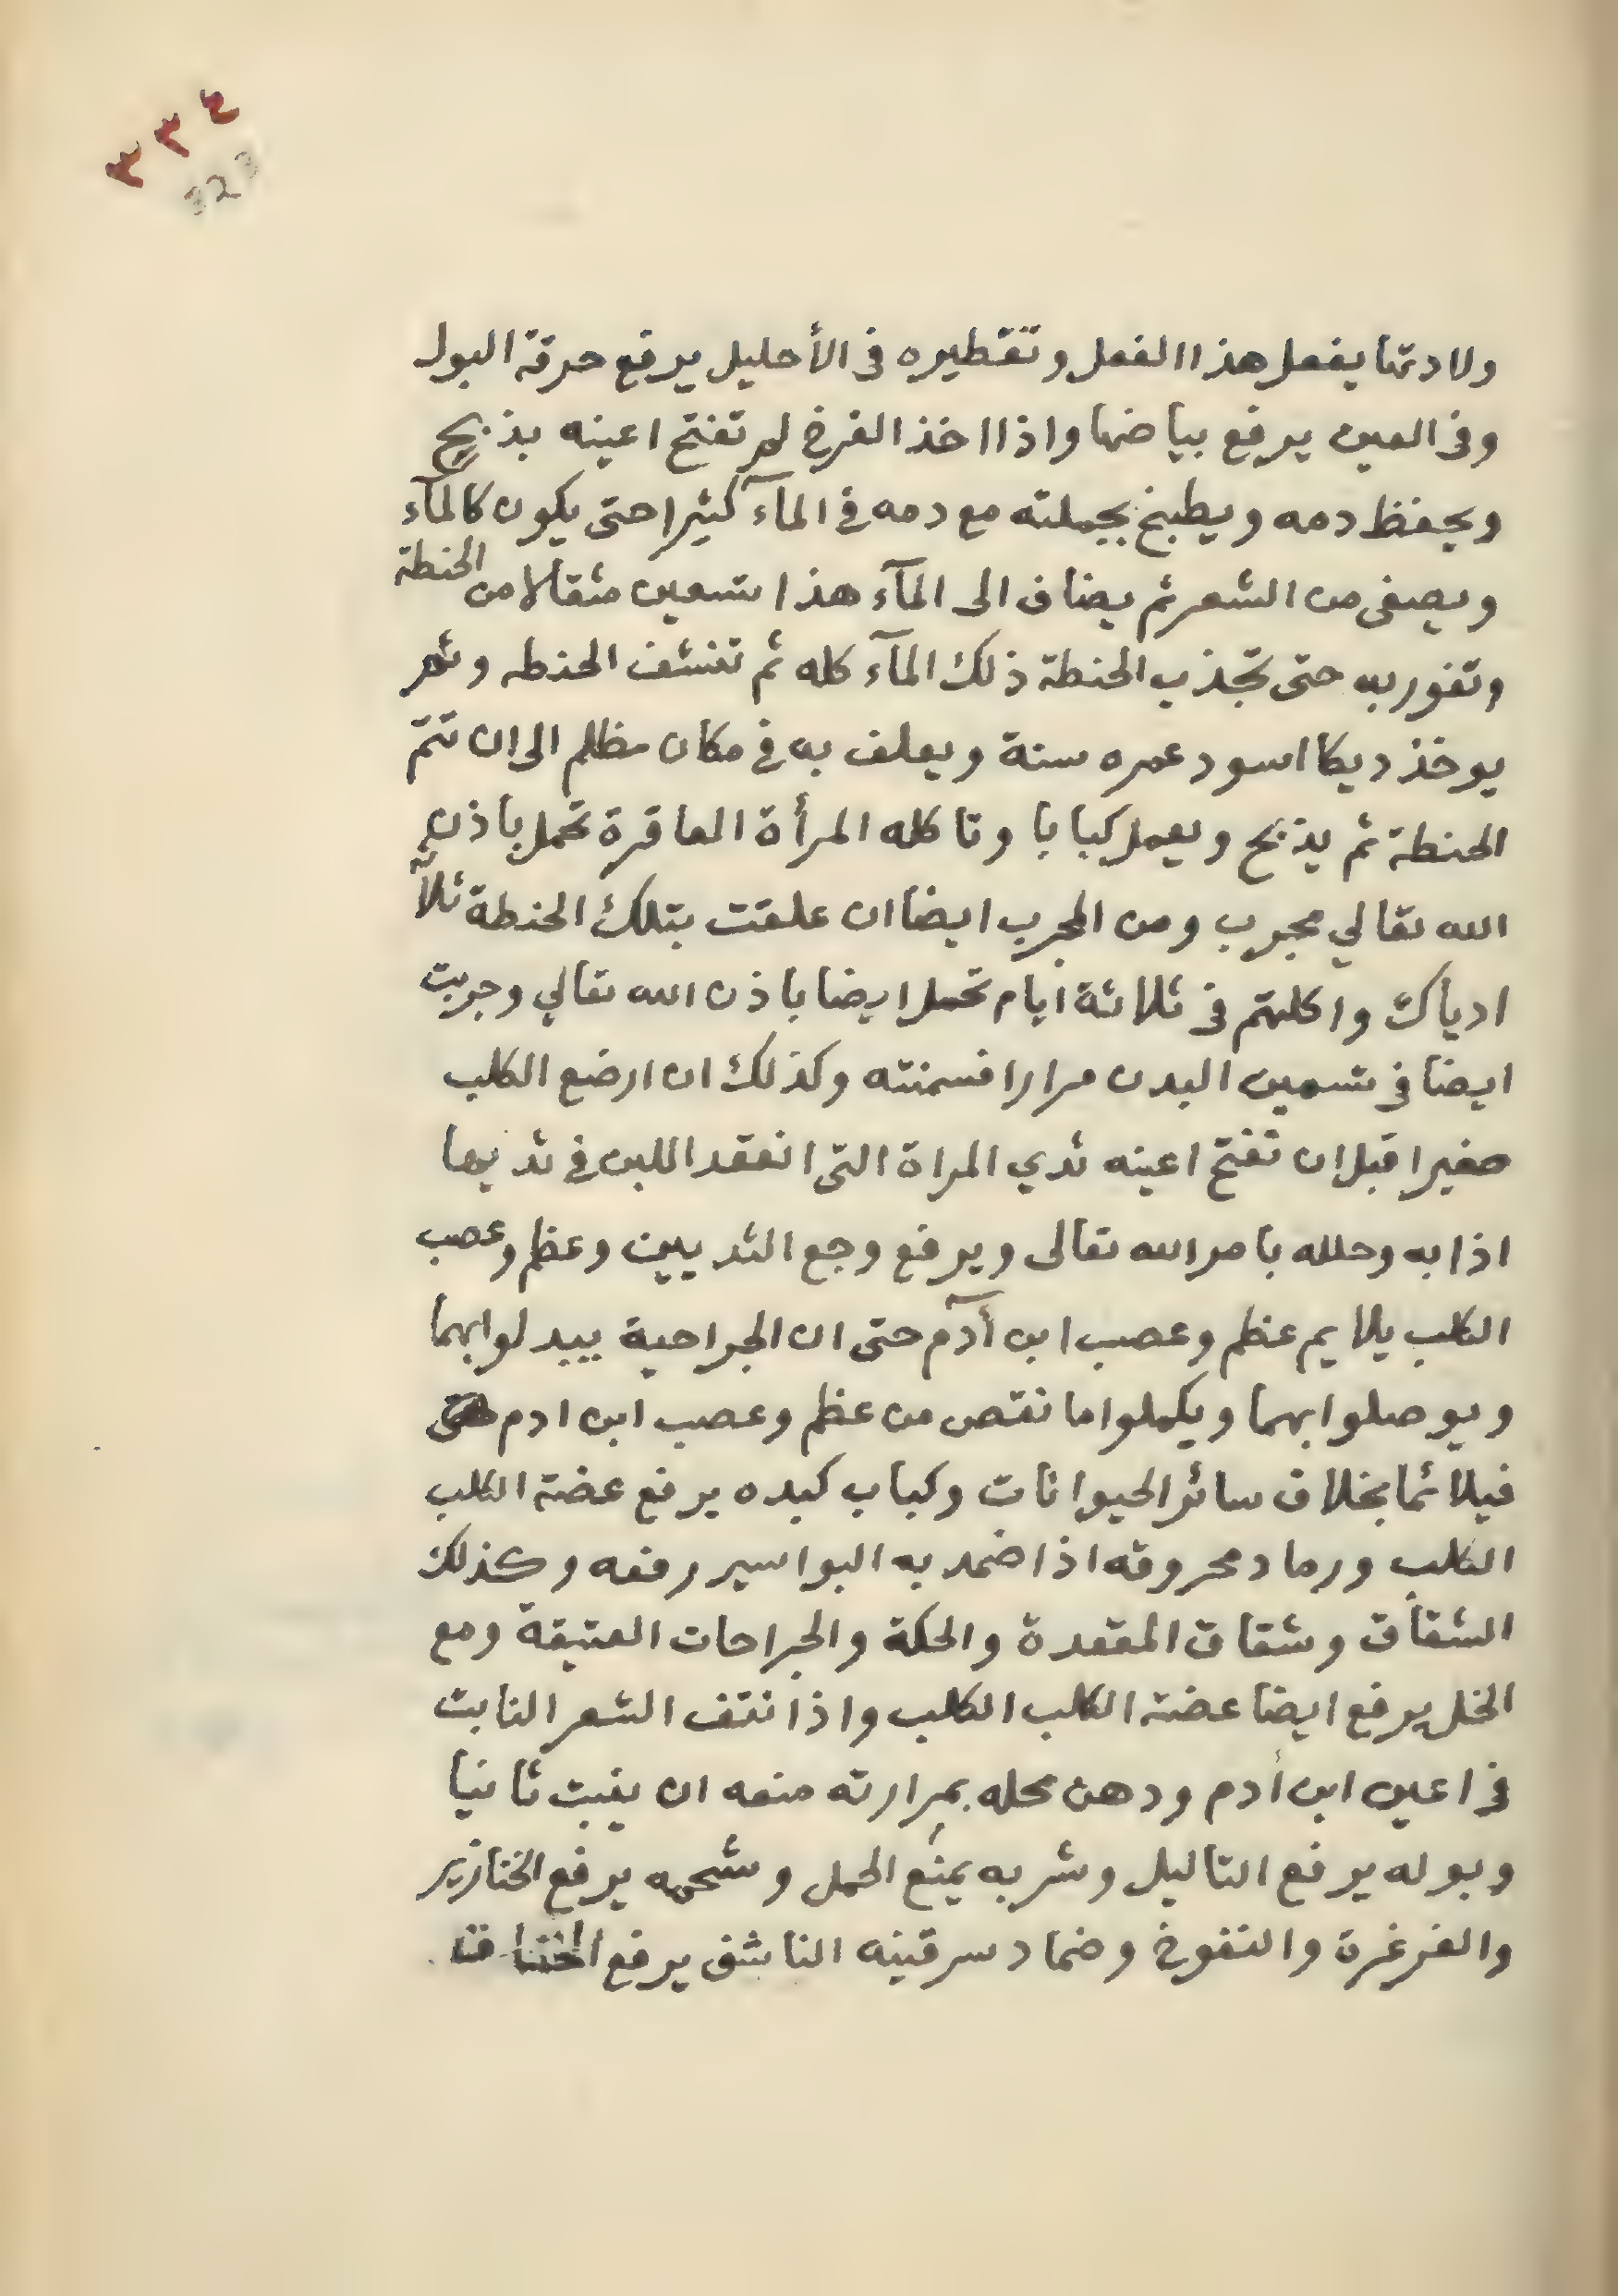 ٣٣٤
323
ولادتها يفعل هذا الفعل وتقطيره فى الأحليل يرفع حرقة البول
وفى العين يرفع بياضها واذا اخذ الفرخ لم تفتح اعينه بذبح
ويحفظ دمه ويطبخ بجملته مع دمه فى المآء كثيرا حتى يكون كالمآء
ويصفى من الشعر ثم يضاف الى المآء هذا تسعين مثقالا من الحنطة
وتفور به حتى تجذب الحنطة ذلك المآء كله ثم تنشف الحنطه وثم
يوخذ ديكا اسود عمره سنة ويعلف به فى مكان مظلم الى ان تتم
الحنطة ثم يذبح ويعمل كبابا وتاكله المرأة العاقرة تحمل باذن
الله تعالي مجرب ومن المجرب ايضا ان علقت بتلك الحنطة ثلاث
ادياك واكلتهم فى ثلاثة ايام تحمل ايضا باذن الله تعالي وجربت
ايضا فى تسمين البدن مرارا فسمنته وكذلك ان ارضع الكلب
صغيرا قبل ان تفتح اعينه ثدي المراة التى انعقد اللبن فى ثديها
اذابه وحلله بامر الله تعالى ويرفع وجع الثديين وعظم وعصب
الكلب يلايم عظم وعصب ابن آدم حتى ان الجراحية يبدلوا بهما
ويوصلوا بهما ويكملوا ما نقص من عظم وعصب ابن ادم حتى
فيلائما بخلاف سائر الحيوانات وكباب كبده يرفع عضة الكلب
الكلب ورماد محروقه اذا ضمد به البواسير رفعه وكذلك
الشقاق وشقاق المقعدة والحكة والجراحات العتيقة ومع
الخل يرفع ايضا عضة الكلب الكلب واذا نتف الشعر النابت
فى اعين ابن أدم ودهن محله بمرارته منعه ان ينبت ثانيا
وبوله يرفع التاليل وشربه يمنع الحمل وشحمه يرفع الخنازير
والغرغرة والنفوخ وضماد سرقينه الناشف يرفع